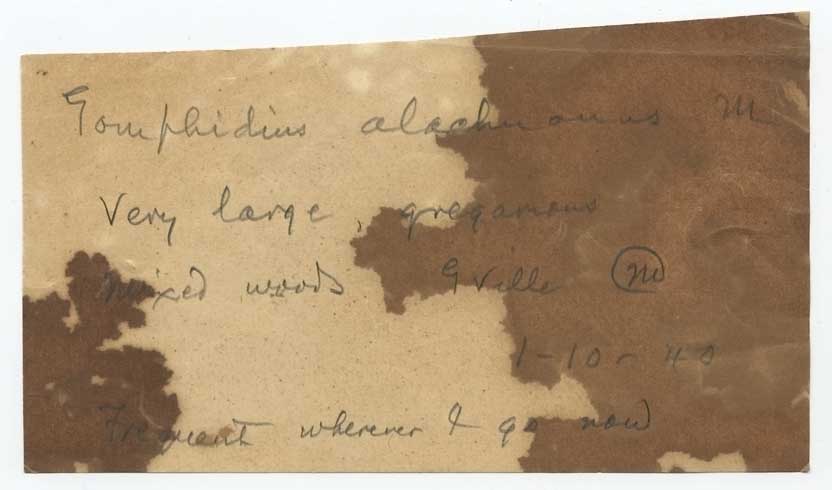 Gomphidius alachuanus M
Very large, gregarious
Mixed woods Gville M
1-10-40
Frequent wherever I go now